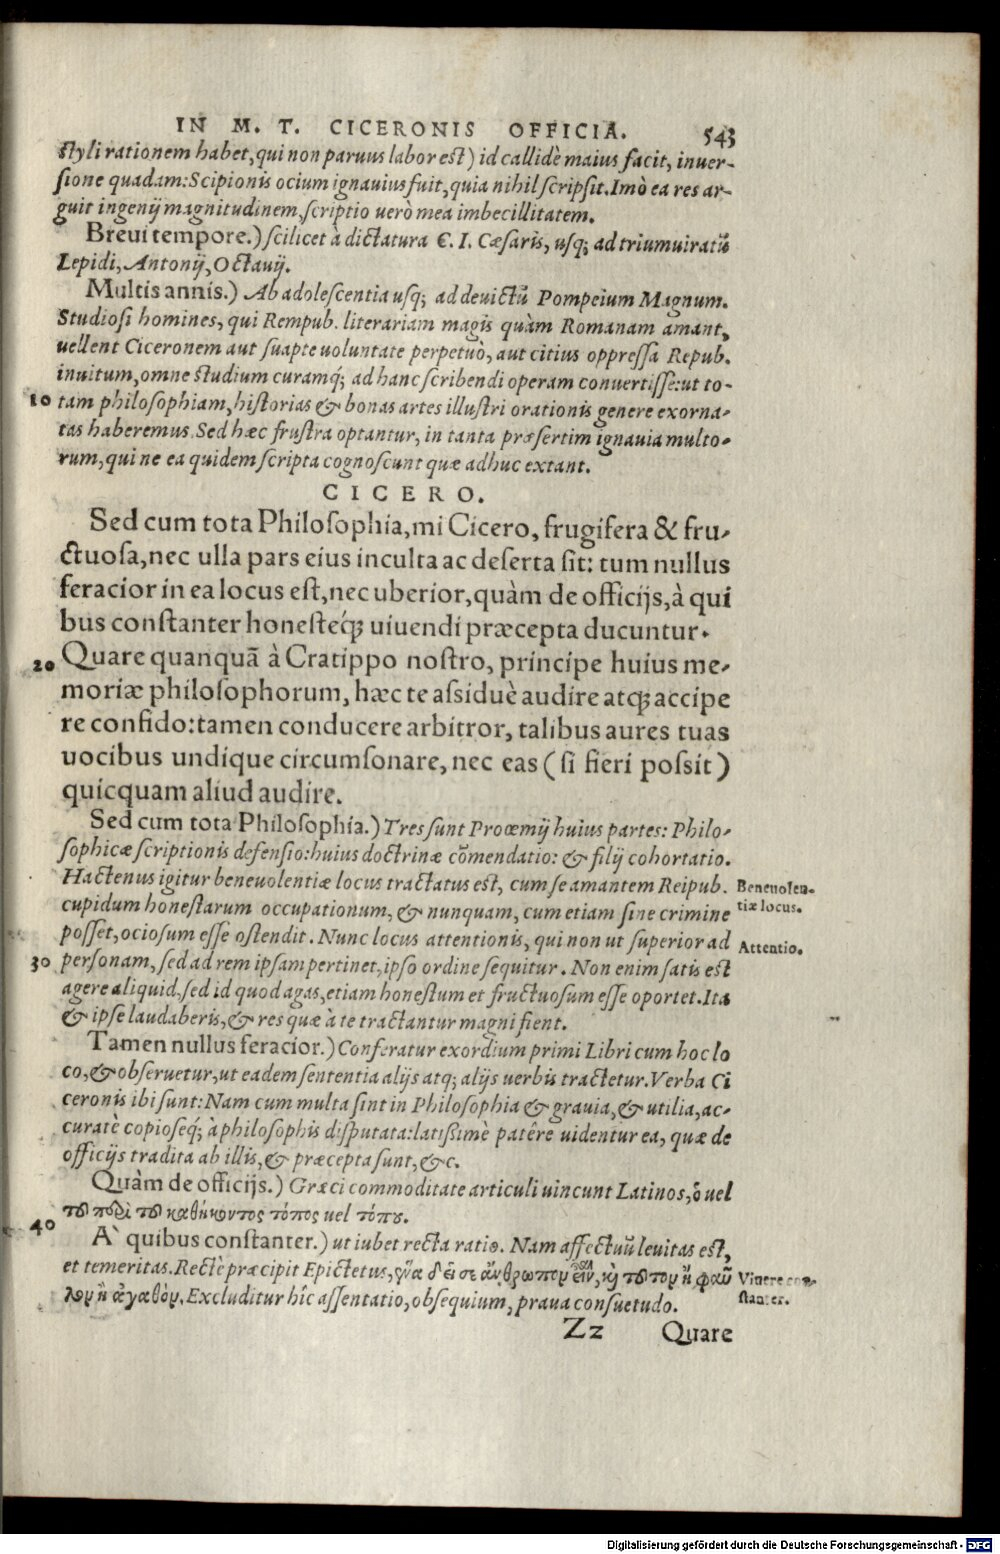 IN M. T. CICERONIS OFFICIA. 543
ſtyli rationem habet, qui non paruus labor eſt) id callidè maius facit, inuer-
ſione quadam: Scipionis ocium ignauius fuit, quia nihil ſcripſit. Imò ea res ar-
guit ingenij magnitudinem, ſcriptio uerò mea imbecillitatem.
Breui tempore.) ſcilicet à dictatura C. I. Cæſaris, uſq; ad triumuiratũ
Lepidi, Antonij, Octauij.
Multis annis.) Ab adoleſcentia uſq; ad deuictũ Pompeium Magnum.
Studioſi homines, qui Rempub. literariam magis quàm Romanam amant,
uellent Ciceronem aut ſuapte uoluntate perpetuò, aut citius oppreſſa Repub.
inuitum, omne ſtudium curamq́; ad hanc ſcribendi operam conuertiſſe: ut to-
10 tam philoſophiam, hiſtorias & bonas artes illuſtri orationis genere exorna-
tas haberemus. Sed hæc fruſtra optantur, in tanta præſertim ignauia multo-
rum, qui ne ea quidem ſcripta cognoſcunt quæ adhuc extant.
CICERO.
Sed cum tota Philoſophia, mi Cicero, frugifera & fru-
ctuoſa, nec ulla pars eius inculta ac deſerta ſit: tum nullus
feracior in ea locus eſt, nec uberior, quàm de officijs, à qui
bus conſtanter honeſteq́; uiuendi præcepta ducuntur.
20 Quare quanquã à Cratippo noſtro, principe huius me-
moriæ philoſophorum, hæc te aſsiduè audire atq; accipe
re confido: tamen conducere arbitror, talibus aures tuas
uocibus undique circumſonare, nec eas (ſi fieri poſsit)
quicquam aliud audire.
Sed cum tota Philoſophia.) Tres ſunt Proœmij huius partes: Philo-
ſophicæ ſcriptionis defenſio: huius doctrinæ cõmendatio: & filij cohortatio.
Hactenus igitur beneuolentiæ locus tractatus eſt, cum ſe amantem Reipub. Beneuolen-
cupidum honeſtarum occupationum, & nunquam, cum etiam ſine crimine tiæ locus.
poſſet, ocioſum eſſe oſtendit. Nunc locus attentionis, qui non ut ſuperior ad Attentio.
30 perſonam, ſed ad rem ipſam pertinet, ipſo ordine ſequitur. Non enim ſatis eſt
agere aliquid, ſed id quod agas, etiam honeſtum et fructuoſum eſſe oportet. Ita
& ipſe laudaberis, & res quæ à te tractantur magni fient.
Tamen nullus feracior.) Conferatur exordium primi Libri cum hoc lo
co, & obſeruetur, ut eadem ſententia alijs atq; alijs uerbis tractetur. Verba Ci
ceronis ibi ſunt: Nam cum multa ſint in Philoſophia & grauia, & utilia, ac-
curatè copioſeq́; à philoſophis diſputata: latißimè patêre uidentur ea, quæ de
officijs tradita ab illis, & præcepta ſunt, &c.
Quàm de officijs.) Græci commoditate articuli uincunt Latinos, ὁ uel
τοῦ περὶ τοῦ καθήκοντος τόπος uel τόπου.
40 A` quibus conſtanter.) ut iubet recta ratio. Nam affectuũ leuitas eſt,
et temeritas. Rectè præcipit Epictetus, ἕνα δεῖ σε ἄνθρωπον εἶναι, καὶ τοῦτον ἢ φαῦ Viuere con-
λον ἢ ἀγαθὸν. Excluditur hîc aſſentatio, obſequium, praua conſuetudo. ſtanter.
Zz Quare
Digitalisierung gefördert durch die Deutsche Forschungsgemeinschaft - DFG